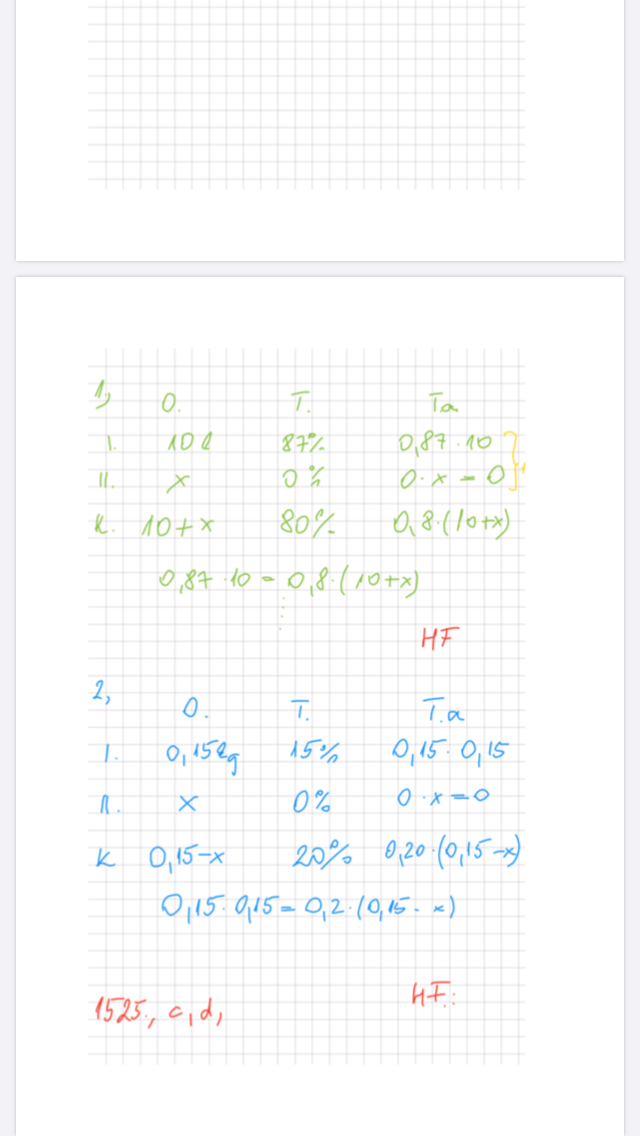 1,) O. T. Ta
I. 10 l 87% 0,87 · 10
II. x 0% 0 · x = 0
K. 10+x 80% 0,8·(10+x)
0,87 · 10 = 0,8·(10+x)
HF
2, O. T. T.a
I. 0,15kg 15% 0,15 · 0,15
II. x 0% 0 · x = 0
K 0,15-x 20% 0,20·(0,15-x)
0,15 · 0,15 = 0,2·(0,15-x)
HF.:
1525., c, d,